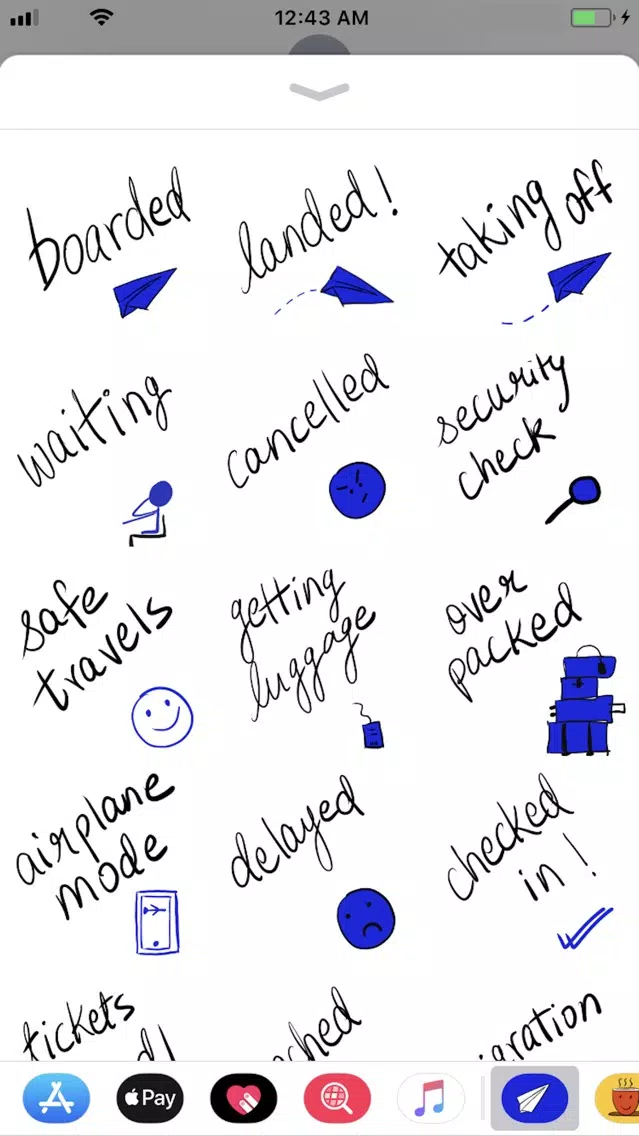 12:43 AM
boarded
landed!
taking off
waiting
cancelled
security
check
safe
travels
getting
luggage
over
packed
airplane
mode
delayed
checked
in!
tickets
Pay